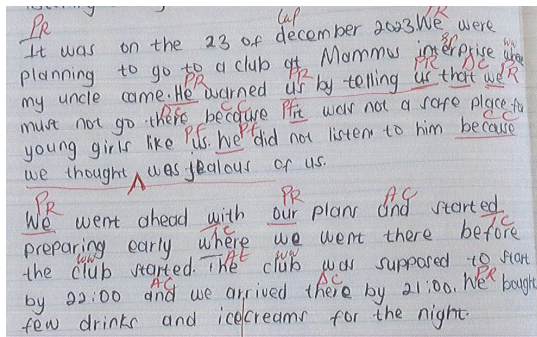 PR Cap PR
It was on the 23 of december 2023. We were
PR SP ww
planning to go to a club at Mammus interprise where
PR PR PR AC PR
my uncle came. He warned us by telling us that we
RC CC Pf
must not go there because it was not a safe place for
Pf Pf CC
young girls like us. We did not listen to him because
we thought ^ was jealous of us.
PR PR AC
We went ahead with our plans and started
TC TC
preparing early where we went there before
ww At ww
the club started. The club was supposed to start
AC RC PR
by 22:00 and we arrived there by 21:00. We bought
few drinks and icecreams for the night.